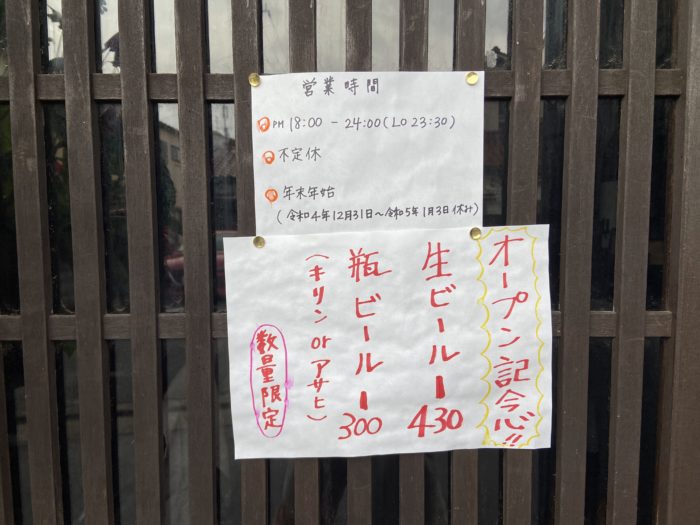 営業時間
PM 18:00 - 24:00(LO 23:30)
不定休
年末年始
(令和4年12月31日〜令和5年1月3日休み)
オープン記念!!
生ビール ー 430
瓶ビール ー 300
(キリン or アサヒ)
数量限定